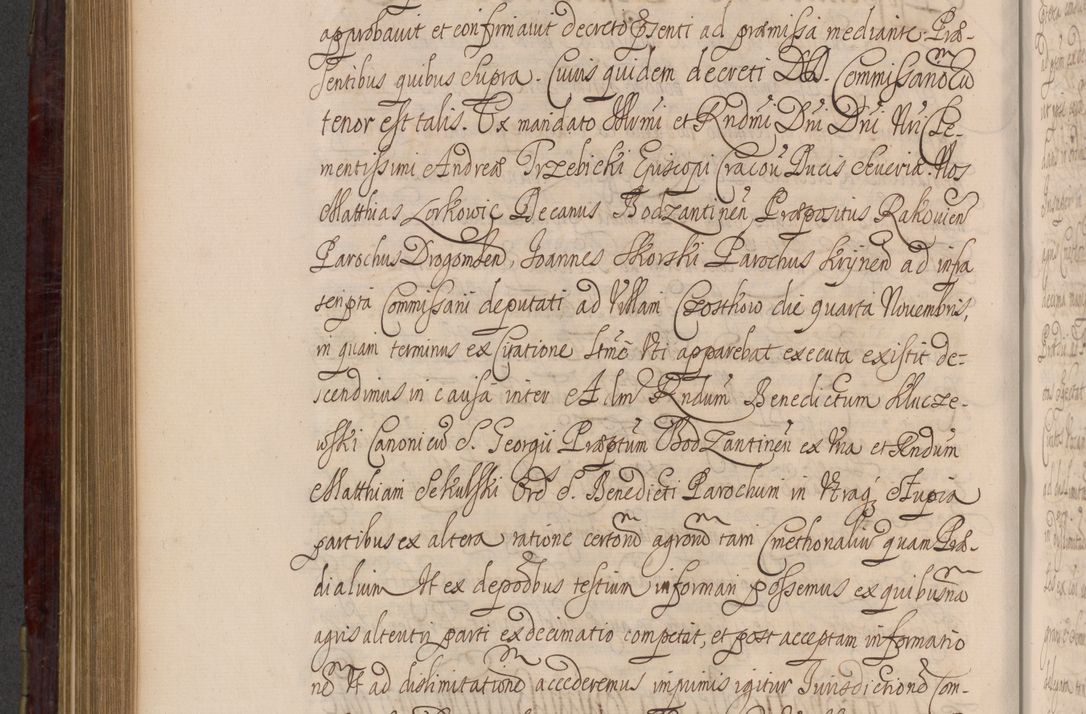 approbavit et confirmavit decreto pſenti ad præmiſſa mediante. Præ-
ſentibus quibus Supra. Cuius quidem decreti DD. Commiſſario᷈ru᷈
tenor eſt talis. Ex mandato Illu᷈mi et Rndmi Dni Dni Nri Cle-
mentiſſimi Andreæ Trzebicki Episcopi Cracou Ducis Seueriæ. Nos
Matthias Lorkowic Decanus Bodzantinen Præpositus Rakouien
Parochus Drogomlen, Joannes Skorski Parochus Krynen ad infra
scripta Commiſſarii deputati ad Villam Czostkow die quarta Nouembris,
in quam terminus ex Citatione apparebat executa existit de-
scendimus in cauſa inter Adm Rndum Benedictum Klucze-
wſki Canonicu S. Georgii Præptum Bodzantinen ex Vna et Rndum
Matthiam Sekulſki Ord S. Benedicti Parochum in Slupia
partibus ex altera ratione certoru agroru tam Cmethonaliu quam Præ-
dialium Vt ex depoobus testium informari poſſemus ex quibusna
agris altentri parti ex decimatio competit, et post acceptam informatio
ne Vt ad dislimitatione accederemus inprimis igitur Jurisdictione Com-